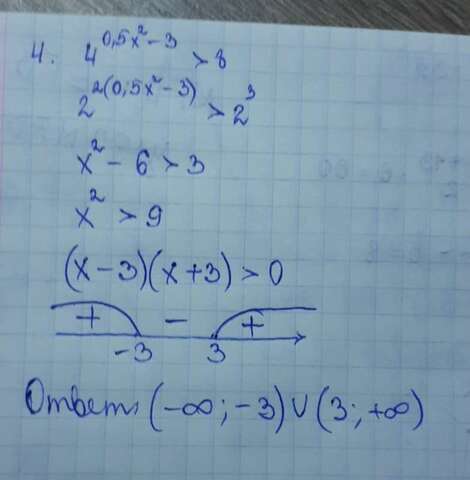 4. 4^{0,5x²-3} > 8
2^{2(0,5x²-3)} > 2³
x² - 6 > 3
x² > 9
(x-3)(x+3) > 0
+ - +
-3 3
Ответ: (-∞; -3) ∪ (3; +∞)